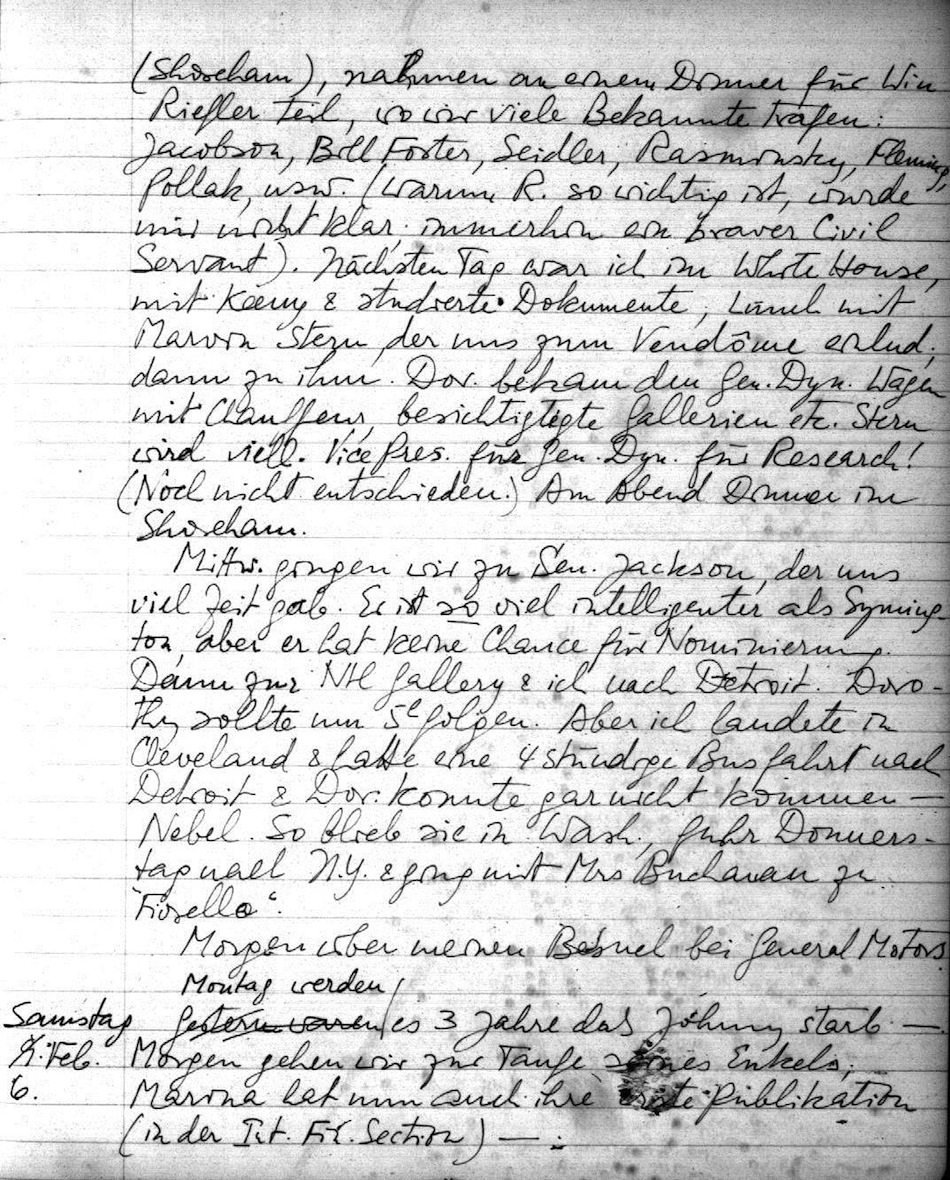 (Shoreham), nahmen an einem Dinner für Win
Riefler teil, wo wir viele Bekannte trafen:
Jacobson, Bill Foster, Seidler, Rasminsky, Fleming,
Pollak, usw. (Warum R. so wichtig ist, wurde
mir nicht klar; immerhin ein braver Civil
Servant). Nächsten Tag war ich im White House,
mit & studierte Dokumente, Lunch mit
Marvin Stern, der uns zum Vendôme einlud;
dann zu ihm. Dor. bekam den Gen. Dyn. Wagen
mit Chauffeur, besichtigtegte Gallerien etc. Stern
wird viell. Vice Pres. für Gen. Dyn. für Research!
(Noch nicht entschieden.) Am Abend Dinner im
Shoreham.
Mittw. gingen wir zu Sen. Jackson, der uns
viel Zeit gab. Er ist so viel intelligenter als Syming-
ton, aber er hat keine Chance für Nominierung.
Dann zur Ntl Gallery & ich nach Detroit. Doro-
thy sollte um 5h folgen. Aber ich landete in
Cleveland & hatte eine 4 stündige Busfahrt nach
Detroit & Dor. konnte gar nicht kommen —
Nebel. So blieb sie in Wash., fuhr Donners-
tag nach N.Y. & ging mit Mrs Buchanan zu
"Fiorello".
Morgen über meinen Besuch bei General Motors
Montag werden
Samstag gestern waren es 3 Jahre daß Johnny starb —
Feb. Morgen gehen wir zur Taufe seines Enkels;
6. Marina hat nun auch ihre erste Publikation
(in der Int. Fin. Section) — :